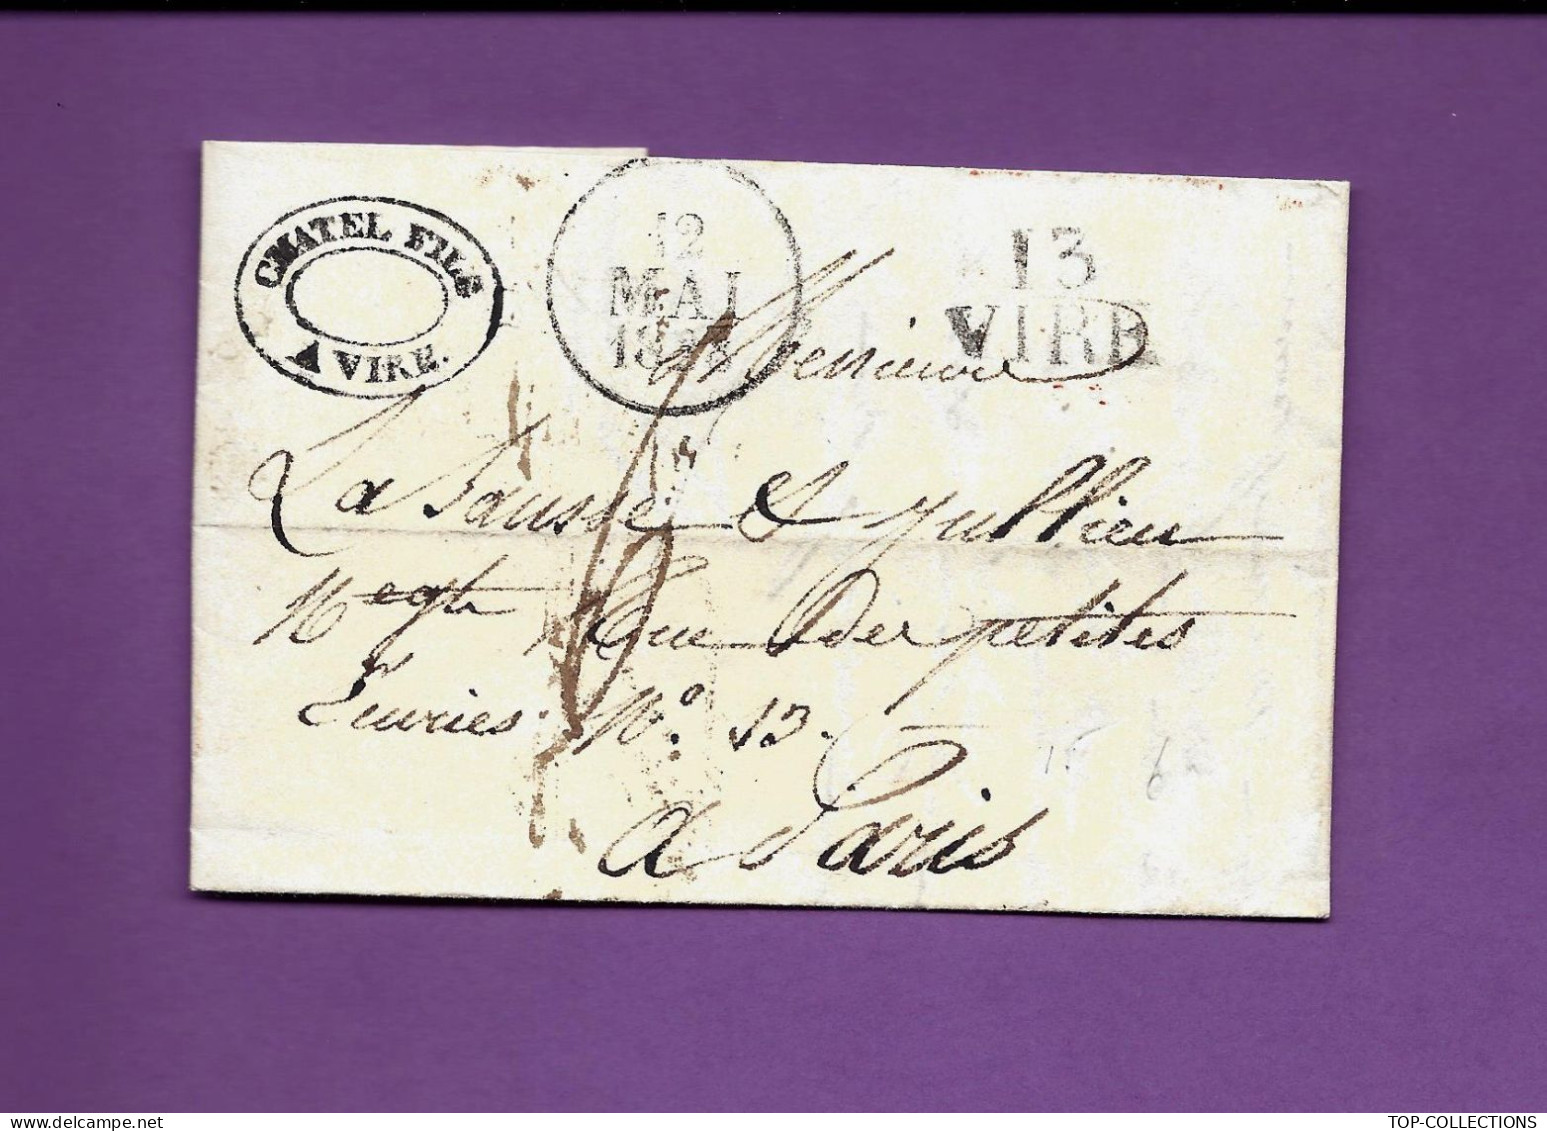 CHATEL FILS
A VIRE.
12
MAI
13
VIRE
Messieurs
La Sausse & Jullien
Negts Rue Des petites
Écuries N° 13.
a Paris
15 6
TOP-COLLECTIONS